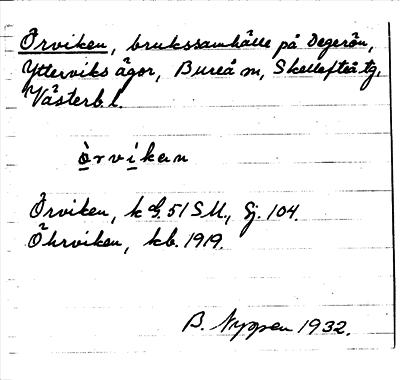 Örviken, brukssamhälle på Degerön,
Ytterviks ägor, Bureå sn, Skellefteå tg,
Västerb l.
ö̀rvìkan
Örviken, k bl. 51 S.U., Gj. 104.
Öhrviken, kb. 1919.
B. Nyssen 1932.